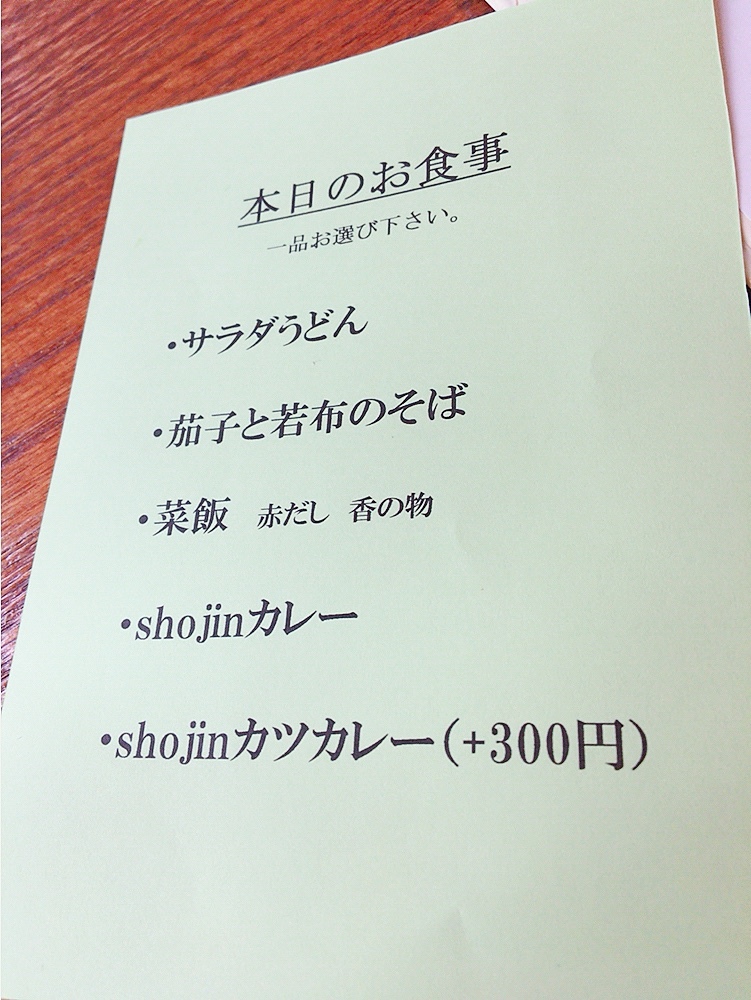 本日のお食事
一品お選び下さい。
・サラダうどん
・茄子と若布のそば
・菜飯　赤だし　香の物
・shojinカレー
・shojinカツカレー(+300円)